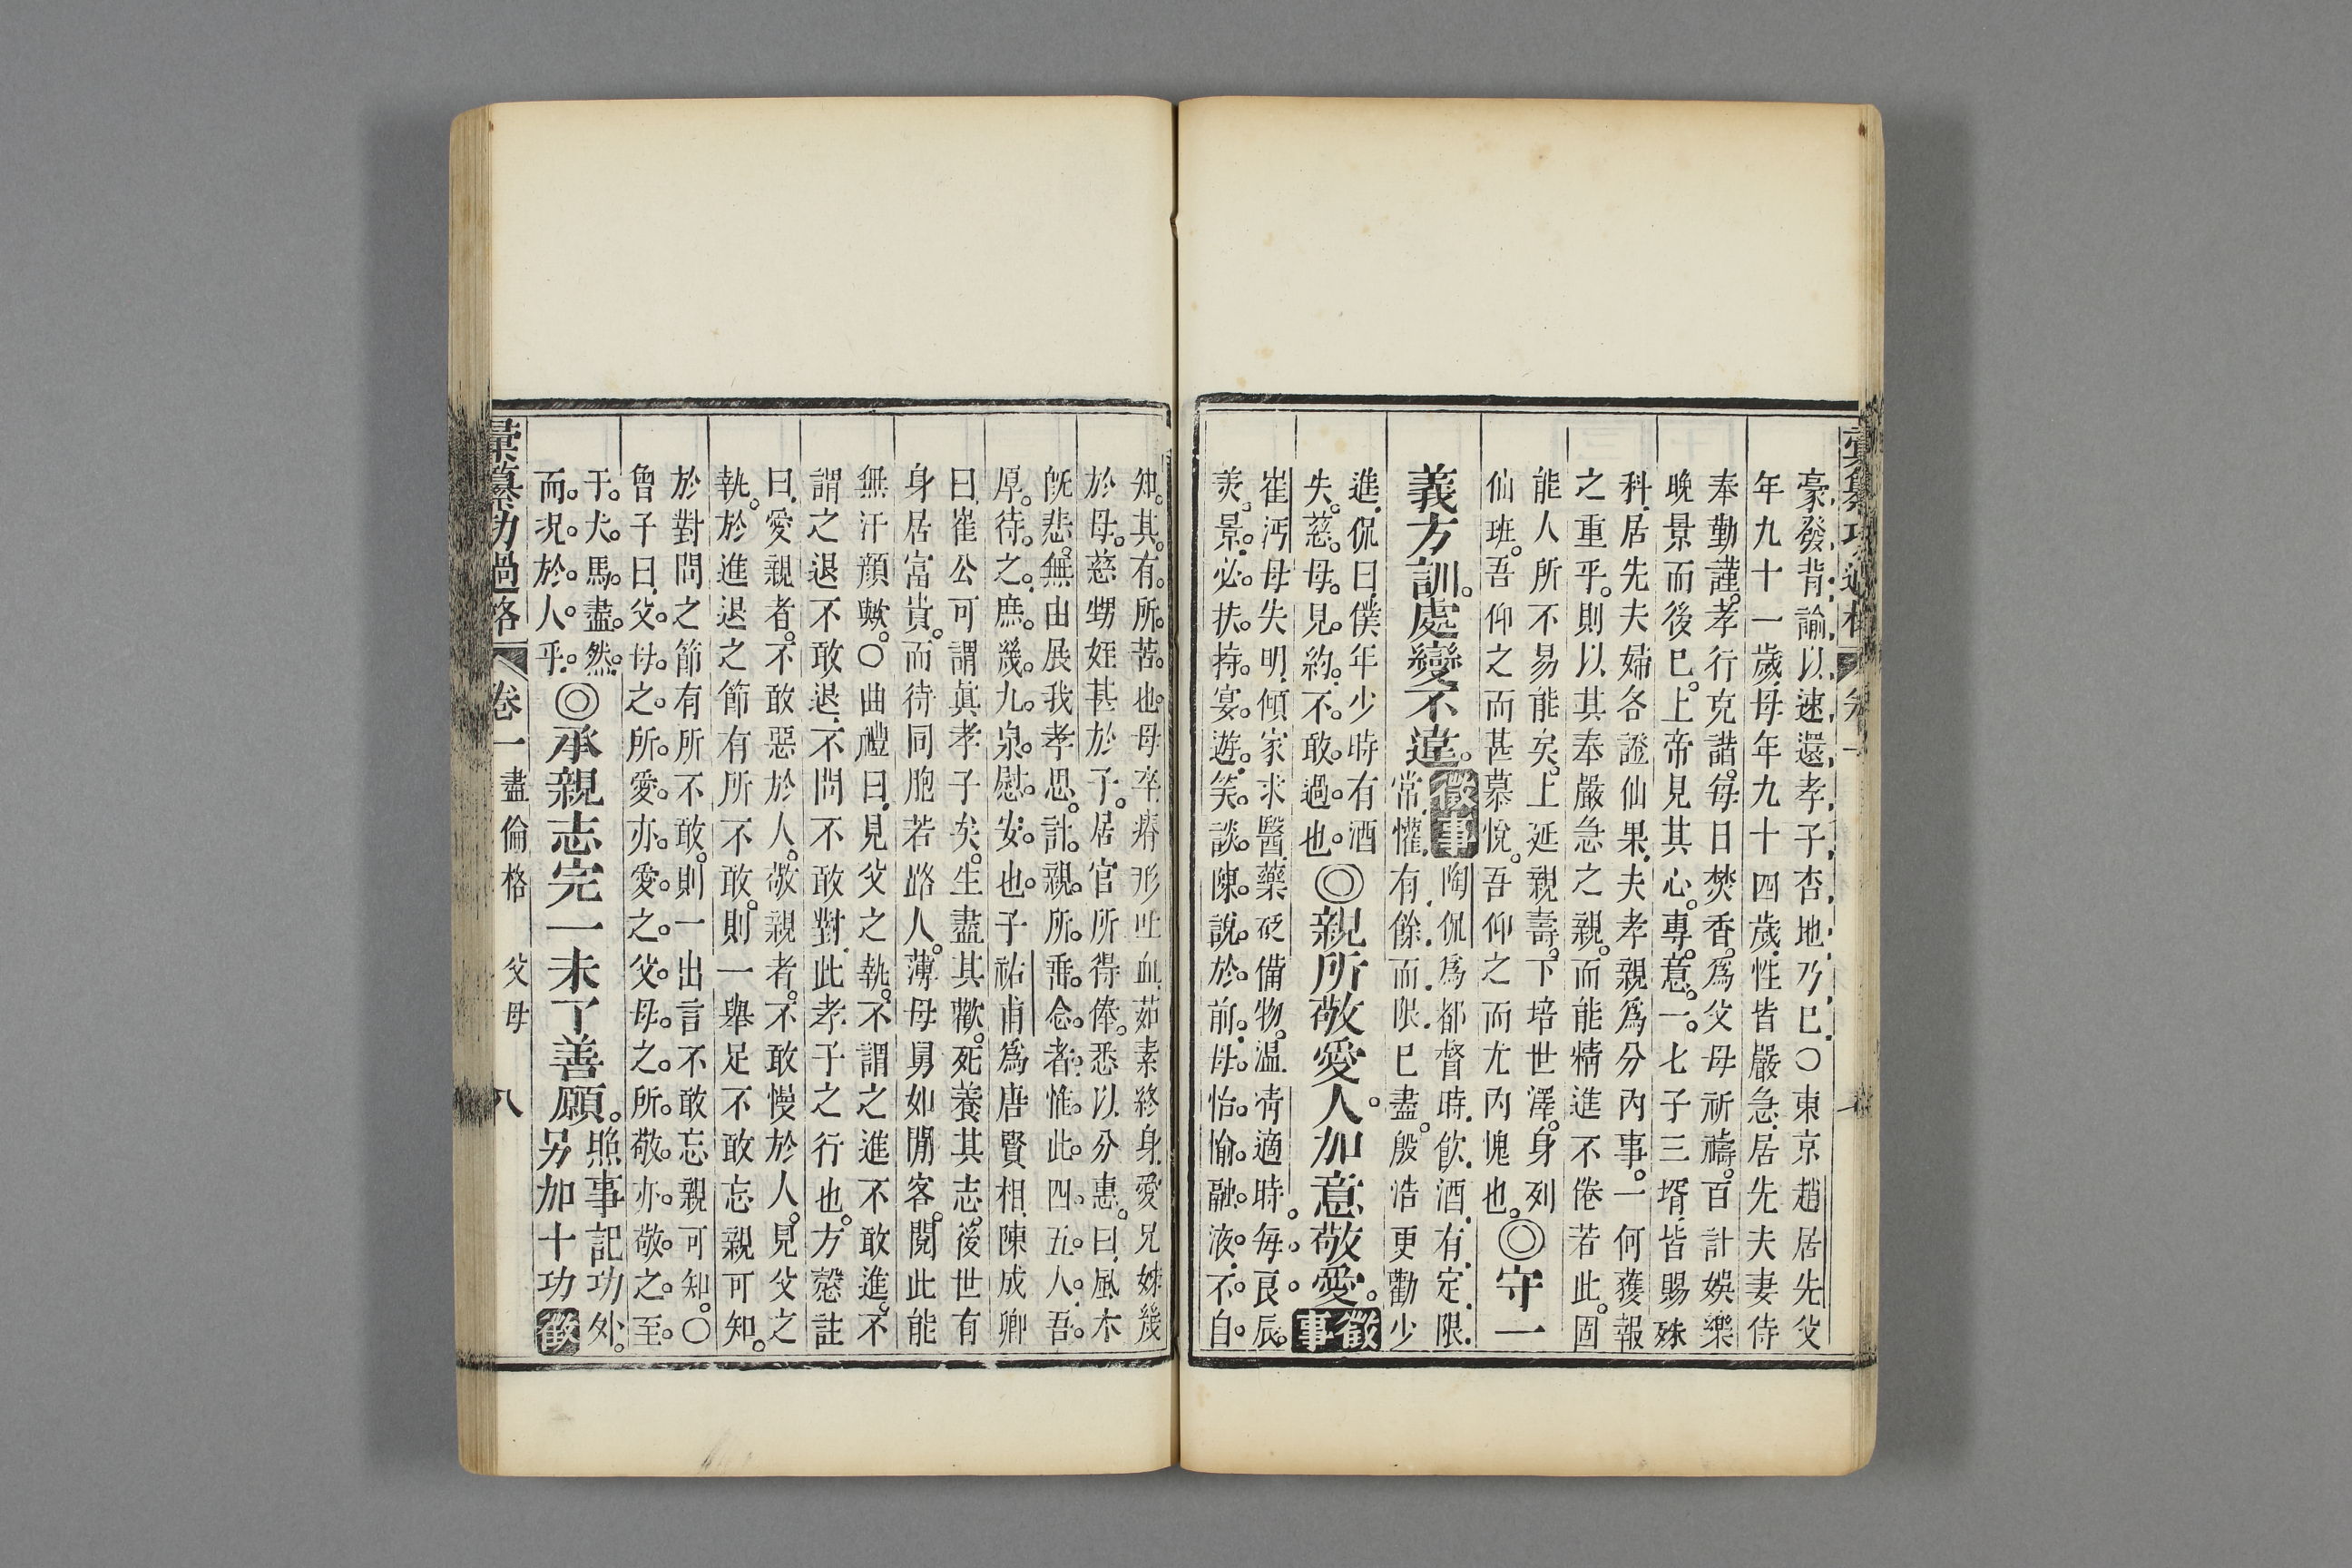 彙纂功過格 卷一
豪發背諭以速還孝子杏地乃已○東京趙居先父
年九十一歲母年九十四歲性皆嚴急居先夫妻侍
奉勤謹孝行克諧每日焚香爲父母祈禱百計娛樂
晚景而後已上帝見其心專意一七子三壻皆賜殊
科居先夫婦各證仙果夫孝親爲分內事一何獲報
之重乎則以其奉嚴急之親而能精進不倦若此固
能人所不易能矣上延親壽下培世澤身列
仙班吾仰之而甚慕悅吾仰之而尤內愧也
◎守一
義方訓處變不違
徵事
陶侃爲都督時飲酒有定限
常懽有餘而限已盡殷浩更勸少
進侃曰僕年少時有酒
失慈母見約不敢過也
◎親所敬愛人加意敬愛
徵事
崔沔母失明傾家求醫藥砭備物溫凊適時每良辰
美景必扶持宴遊笑談陳說於前母怡愉融液不自
知其有所苦也母卒瘠形吐血茹素終身愛兄姊幾
於母慈甥姪甚於子居官所得俸悉以分惠曰風木
旣悲無由展我孝思計親所垂念者惟此四五人吾
厚待之庶幾九泉慰安也子祐甫爲唐賢相陳成卿
曰崔公可謂眞孝子矣生盡其歡死養其志後世有
身居富貴而待同胞若路人薄母舅如閒客閱此能
無汗顏歟○曲禮曰見父之執不謂之進不敢進不
謂之退不敢退不問不敢對此孝子之行也方慤註
曰愛親者不敢惡於人敬親者不敢慢於人見父之
執於進退之節有所不敢則一舉足不敢忘親可知
於對問之節有所不敢則一出言不敢忘親可知○
曾子曰父母之所愛亦愛之父母之所敬亦敬之至
于犬馬盡然
而況於人乎
◎承親志完一未了善願
照事記功外
另加十功
徵
彙纂功過格 卷一 盡倫格 父母 八